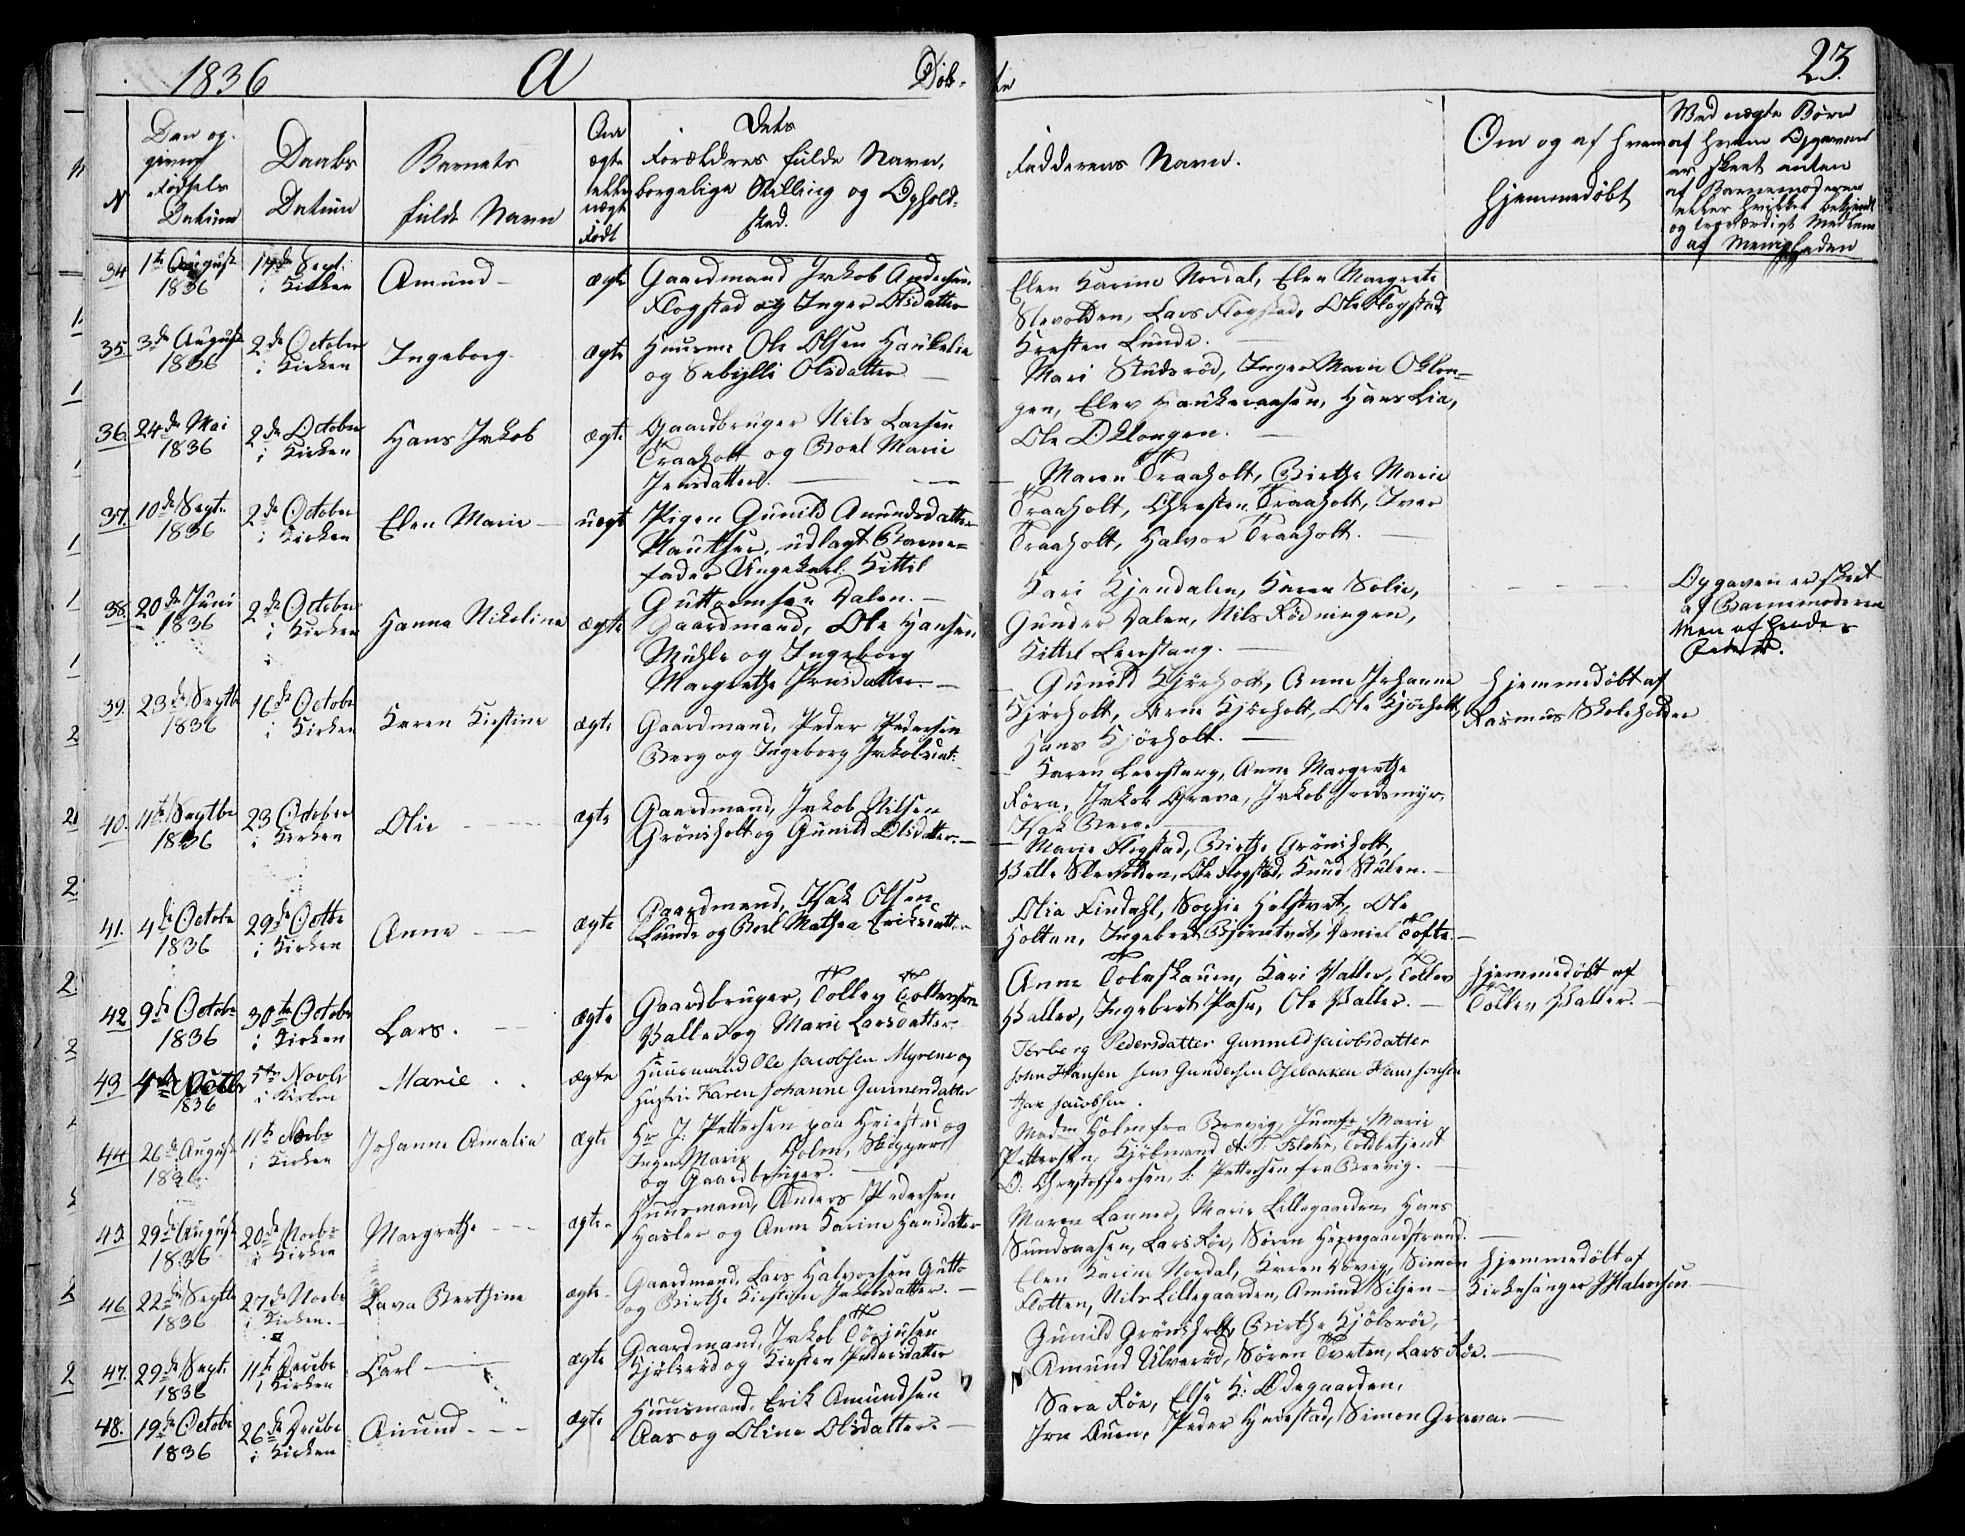 1836 A Døb-
te 23.
N
Den op-
givne
Fødsels
Datum
Daabs
Datum
Barnets
fulde Navn
Om
ægte
eller
uægte
Født
Dets
Forældres fulde Navn,
borgelige Stilling og Ophold-
sted.
Faddernes Navn.
Om og af hvem
hjemmedøbt
Ved uægte Børn
af hvem Opgaven
er skeet enten
af Barnemoderen
eller hvilket bekjendt
og troværdigt Medlem
af Menigheden
34 1te August
1836
17de Sept:
i Kirken
Amund
ægte
Gaardmand Jakob Andersen
Flogstad og Inger Olsdatter
Elen Karine Nordal, Elen Margrete
Slevolden, Lars Flogstad, Ole Flogstad
Kresten Lunde.
35. 3de August
1836
2de October
i Kirken
Ingeborg.
ægte
Huusm: Ole Olsen Haukelia
og Sebylli Olsdatter
Mari Studsrød, Inger Marie Oklon-
gen, Elev Haukeraasen, Hans Lia,
Ole Oklongen.
36. 24de Mai
1836
2de October
i Kirken
Hans Jakob
ægte
Gaardbruger Nils Larsen
Traaholt og Boel Marie
Jensdatter.
Maren Traaholt, Birthe Marie
Traaholt, Christen Traaholt, Iver
Traaholt, Halvor Traaholt.
37. 10de Sept:
1836
2de October
i Kirken
Elen Marie
uægt
Pigen Gunild Amundsdatter
udlagt Barne-
fader Ungekarl Kittil
Guttormsen Dalen.
Kari Kjendalen, Karen Solie,
Gunder Dalen, Nils Rødningen,
Kittil Leerstang.
Opgaven er skeet
af Barnemoderen
Men af hendes
38. 20de Juni
1836
2de October
i Kirken
Hanna Nikoline
ægte
Gaardmand, Ole Hansen
Mühle og Ingeborg
Margrethe Jensdatter
Gunild Kjørholt, Anne Johanne
Kjørholt, Arne Kjørholt, Ole Kjørholt,
Hans Kjørholt.
Hjemmedøbt af
Rasmus Skoleholder
39. 23de Septbr
1836
16de October
i Kirken
Karen Kirstine
ægte
Gaardmand, Peder Pedersen
Berg og Ingeborg Jakobsdat:
Karen Leerstang, Anne Margrethe
Röra, Jakob Grava, Jakob
Isak Berg.
40. 11te Septbr
1836
23 October
i Kirken
Olie
ægte
Gaardmand, Jakob Nilsen
Grönsholt og Gunild Olsdatter.
Marie Flogstad, Birthe Grönsholt,
Slevolden, Ole Flogstad, Knud Stulen.
41. 4de Octobr
1836
29de Octbr
i Kirken
Anne
ægte
Gaardmand, Isak Olsen
Lunde og Berl Mathea Eriksdatter
Olia Findahl, Sophie Helstvet, Ole
Holtan, Ingebret Bjørntvet, Daniel Tofte.
42 9de Octobr
1836
30te Octobr
i Kirken
Lars.
ægte
Gaardbruger, Tollev Tollevsen
Valler og Marie Larsdatter
Anne Tolnæskauen, Kari Valler, Tollev
Valler, Ingebret Ole Valler.
Hjemmedøbt af
Tollev Valler.
43 4de Octbr
1836
5te Novbr
i Kirken
Marie
ægte
Huusmand Ole Jacobsen Myrene og
Hustru Karen Johanne Gunnersdatter
Torberg Pedersdatter Gunnild Jacobsdatter
John Hansen Jens Gundersen Osebakken Hans Jensen
Isak Jacobsen.
44 26de August
1836.
11te Novbr
i Kirken
Johanne Amalia
ægte
Hr J: Pettersen paa Heiestad og
Inger Marie Holm, Skipper
og Gaardbruger.
Madm Holm fra Brevig, Jumfr Marie
Pettersen, Kjøbmand A. T. Toldbetjent
O. Christoffersen, S. Pettersen fra Brevig.
45 29de August
1836
20de Novbr
i Kirken
Margrethe
ægte
Huusmand, Anders Pedersen
Hasler og Anne Karine Hansdatter
Maren Lanner, Marie Lillegaarden, Hans
Sundsaasen, Lars Röe, Søren Herregaardstrand.
46. 22de Septbr
1836
27de Novbr
i Kirken.
Lava Berthine
ægte
Gaardmand, Lars Halvorsen Gutto
og Birthe Kirstine Jakobsdatter.
Elen Karine Nordal, Karen Simon
Flotten, Nils Lillegaarden, Amund Siljen
Hjemmedøbt af
Kirkesanger Halvorsen
47. 29de Sept:
1836
11te Decbr
i Kirken
Carl
ægte
Gaardmand, Jakob Törjusen
Kjölsrød og Kirsten Pedersdatter
Gunild Grönsholt, Birthe Kjölsröd,
Amund Ulveröd, Søren Tveten, Lars Röe.
48. 19de Octobr
1836
26de Decbr
i Kirken
Amund
ægte
Huusmand, Erik Amundsen
Aas og Oline Olsdatter
Sara Röe, Else K: Ødegaarden,
Auen, Peder Heiestad, Simon Grava.